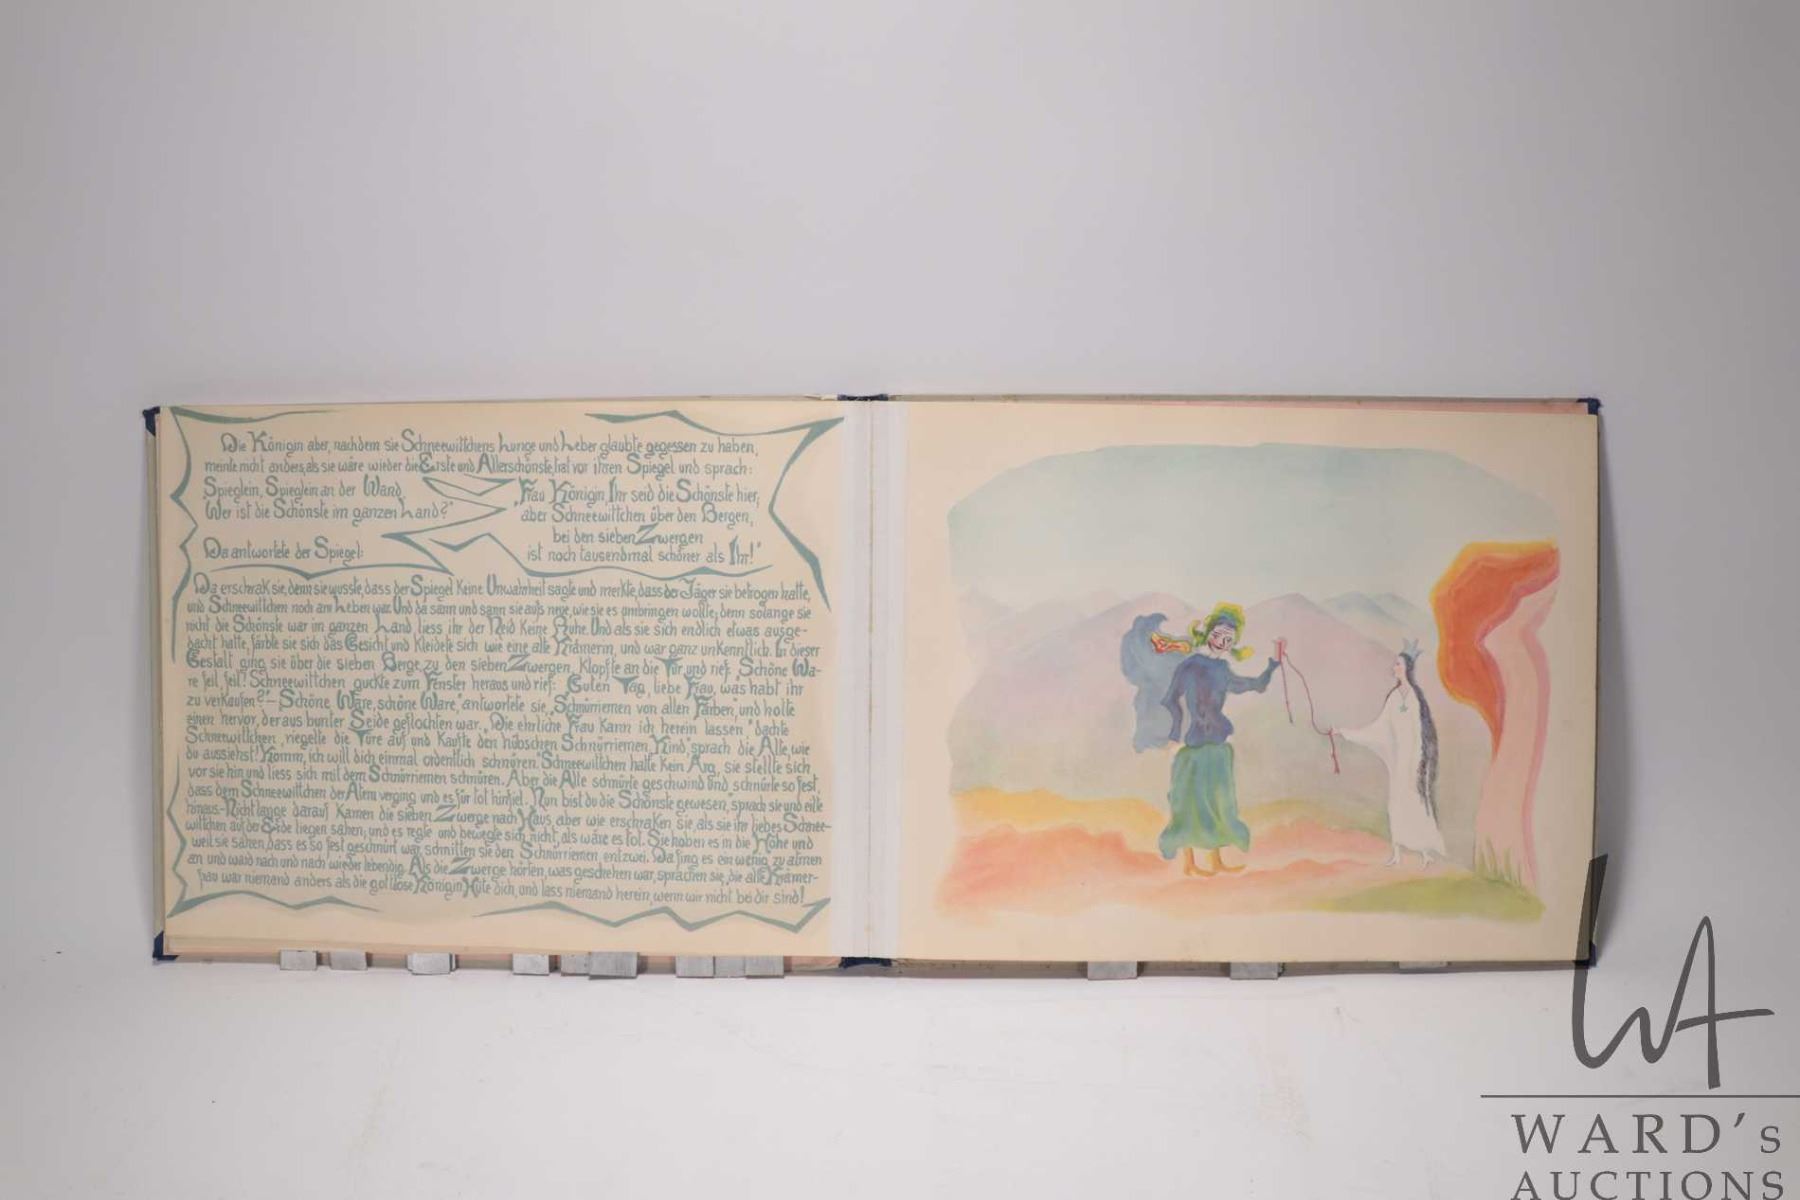 Die Königin aber, nachdem sie Schneewittchens Lunge und Leber glaubte gegessen zu haben,
meinte nicht anders, als sie wäre wieder die Erste und Allerschönste, trat vor ihren Spiegel und sprach:
Spieglein, Spieglein an der Wand,
Wer ist die Schönste im ganzen Land?"
Da antwortete der Spiegel:
"Frau Königin, Ihr seid die Schönste hier,
aber Schneewittchen über den Bergen,
bei den sieben Zwergen
ist noch tausendmal schöner als Ihr!"
Da erschrak sie, denn sie wusste, dass der Spiegel keine Unwahrheit sagte und merkte, dass der Jäger sie betrogen hatte,
und Schneewittchen noch am Leben war. Und da sann und sann sie aufs neue, wie sie es umbringen wollte; denn solange sie
nicht die Schönste war im ganzen Land, liess ihr der Neid keine Ruhe. Und als sie sich endlich etwas ausge-
dacht hatte, färbte sie sich das Gesicht und kleidete sich wie eine alte Krämerin, und war ganz unkenntlich. In dieser
Gestalt ging sie über die sieben Berge zu den sieben Zwergen, klopfte an die Tür und rief: Schöne Wa-
re feil, feil! Schneewittchen guckte zum Fenster heraus und rief: "Guten Tag, liebe Frau, was habt ihr
zu verkaufen?" – Schöne Ware, schöne Ware", antwortete sie, "Schnürriemen von allen Farben, und holte
einen hervor, der aus bunter Seide geflochten war. „Die ehrliche Frau kann ich herein lassen," dachte
Schneewittchen, riegelte die Türe auf und kaufte den hübschen Schnürriemen. Kind, sprach die Alte, wie
du aussiehst! Komm, ich will dich einmal ordentlich schnüren." Schneewittchen hatte kein Arg, sie stellte sich
vor sie hin und liess sich mit dem Schnürriemen schnüren. Aber die Alte schnürte geschwind und schnürte so fest,
dass dem Schneewittchen der Atem verging und es für tot hinfiel. Nun bist du die Schönste gewesen," sprach sie und eilte
hinaus. – Nicht lange darauf kamen die sieben Zwerge nach Haus, aber wie erschraken sie, als sie ihr liebes Schnee-
wittchen auf der Erde liegen sahen; und es regte und bewegte sich nicht, als wäre es tot. Sie hoben es in die Höhe und
weil sie sahen, dass es so fest geschnürt war, schnitten sie den Schnürriemen entzwei. Da fing es ein wenig zu atmen
an und ward nach und nach wieder lebendig. Als die Zwerge hörten, was geschehen war, sprachen sie, die alte Krämer-
frau war niemand anders als die gottlose Königin. Hüte dich, und lass niemand herein, wenn wir nicht bei dir sind!
WA
WARD's
AUCTIONS